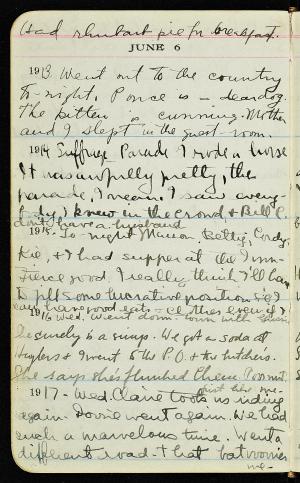 Had rhubarb pie for breakfast.
JUNE 6
1913. Went out to the country
to-night, Ponce is - dear dog.
The kitten is cunning. Mother
and I slept in the guest-room.
1914 Suffrage Parade I rode a horse
It was awfully pretty, the
parade, I mean. I saw every
body I knew in the crowd + Bill C.
don't have a husband
1915. To-night Marion, Betty, Cordy,
Kie, + I had supper at the Inn-
Fierce good. I really think I'll have
to fill some lucrative position so I
can have good eats - all the
1916 Wed. Went down-town with
She surely is a simp. We got a soda at
Huylers + I went to the P.O. + the butchers.
She says she's flunked them
1917- Wed. Claire took us riding
again. Dovie went again. We had
such a marvelous time. Went a
different road - that
me-